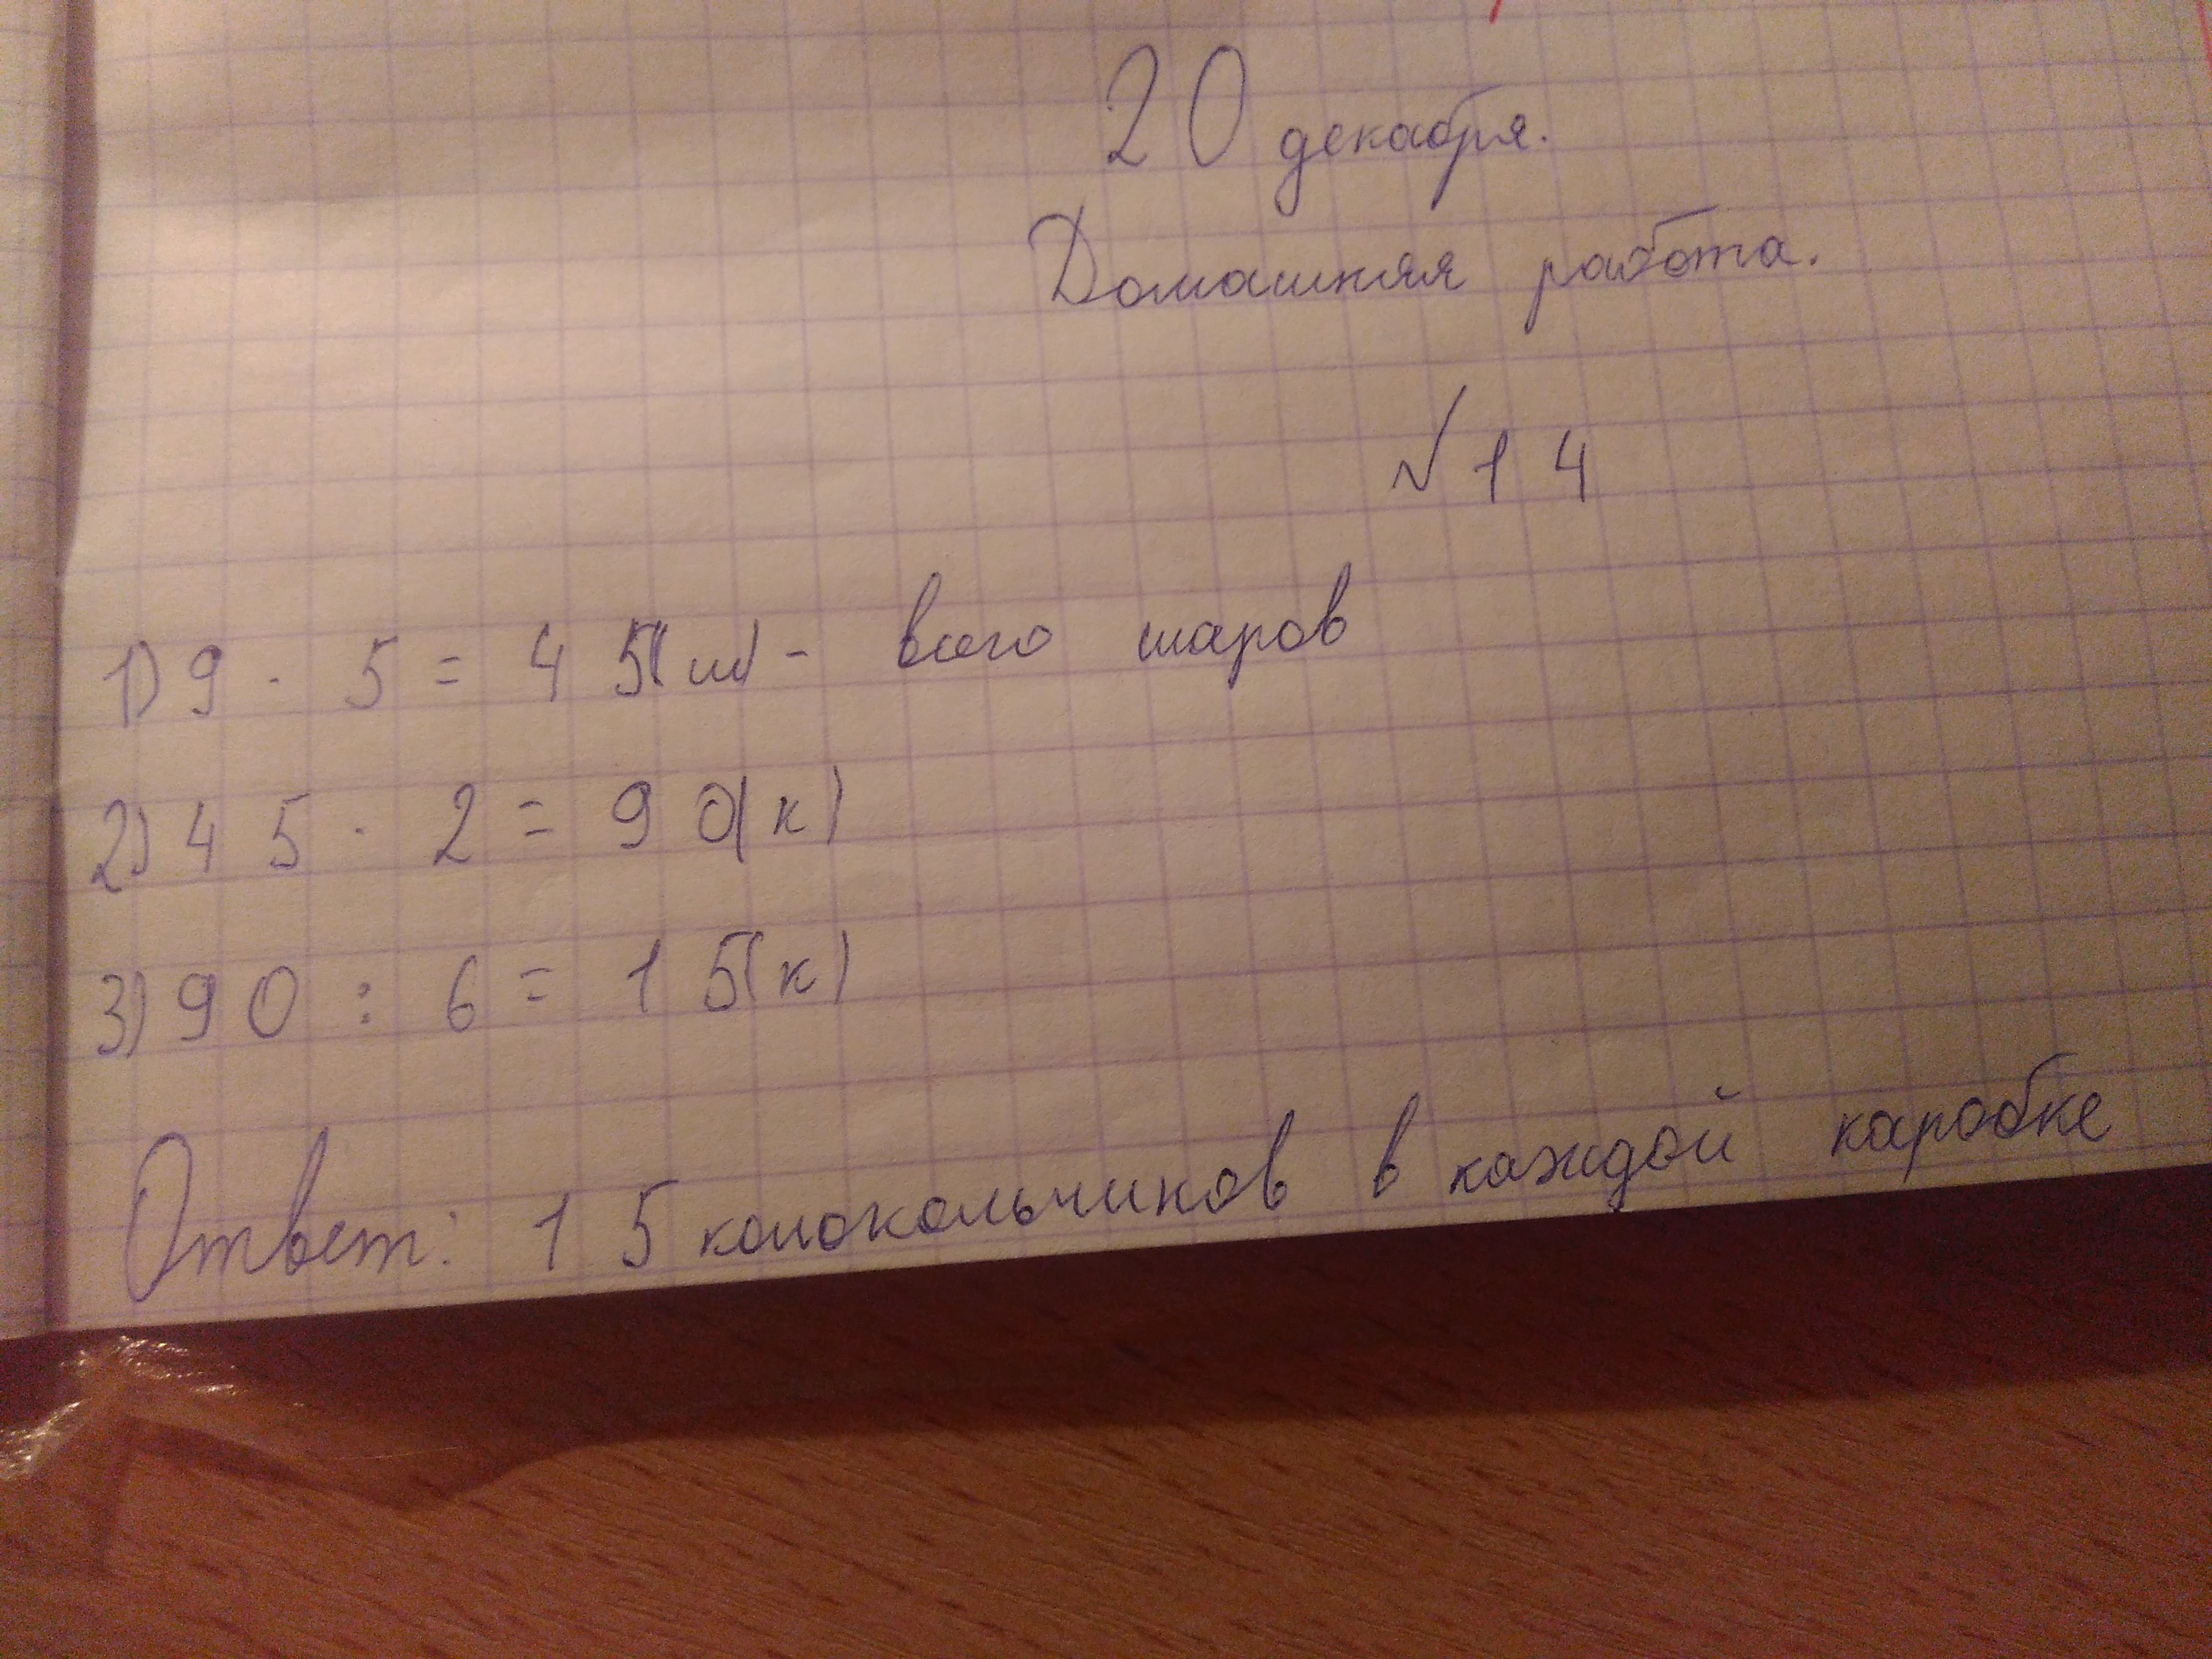 20 декабря.
Домашняя работа.
№14
1) 9 · 5 = 45(ш) - всего шаров
2) 45 · 2 = 90(к)
3) 90 : 6 = 15(к)
Ответ: 15 колокольчиков в каждой каробке